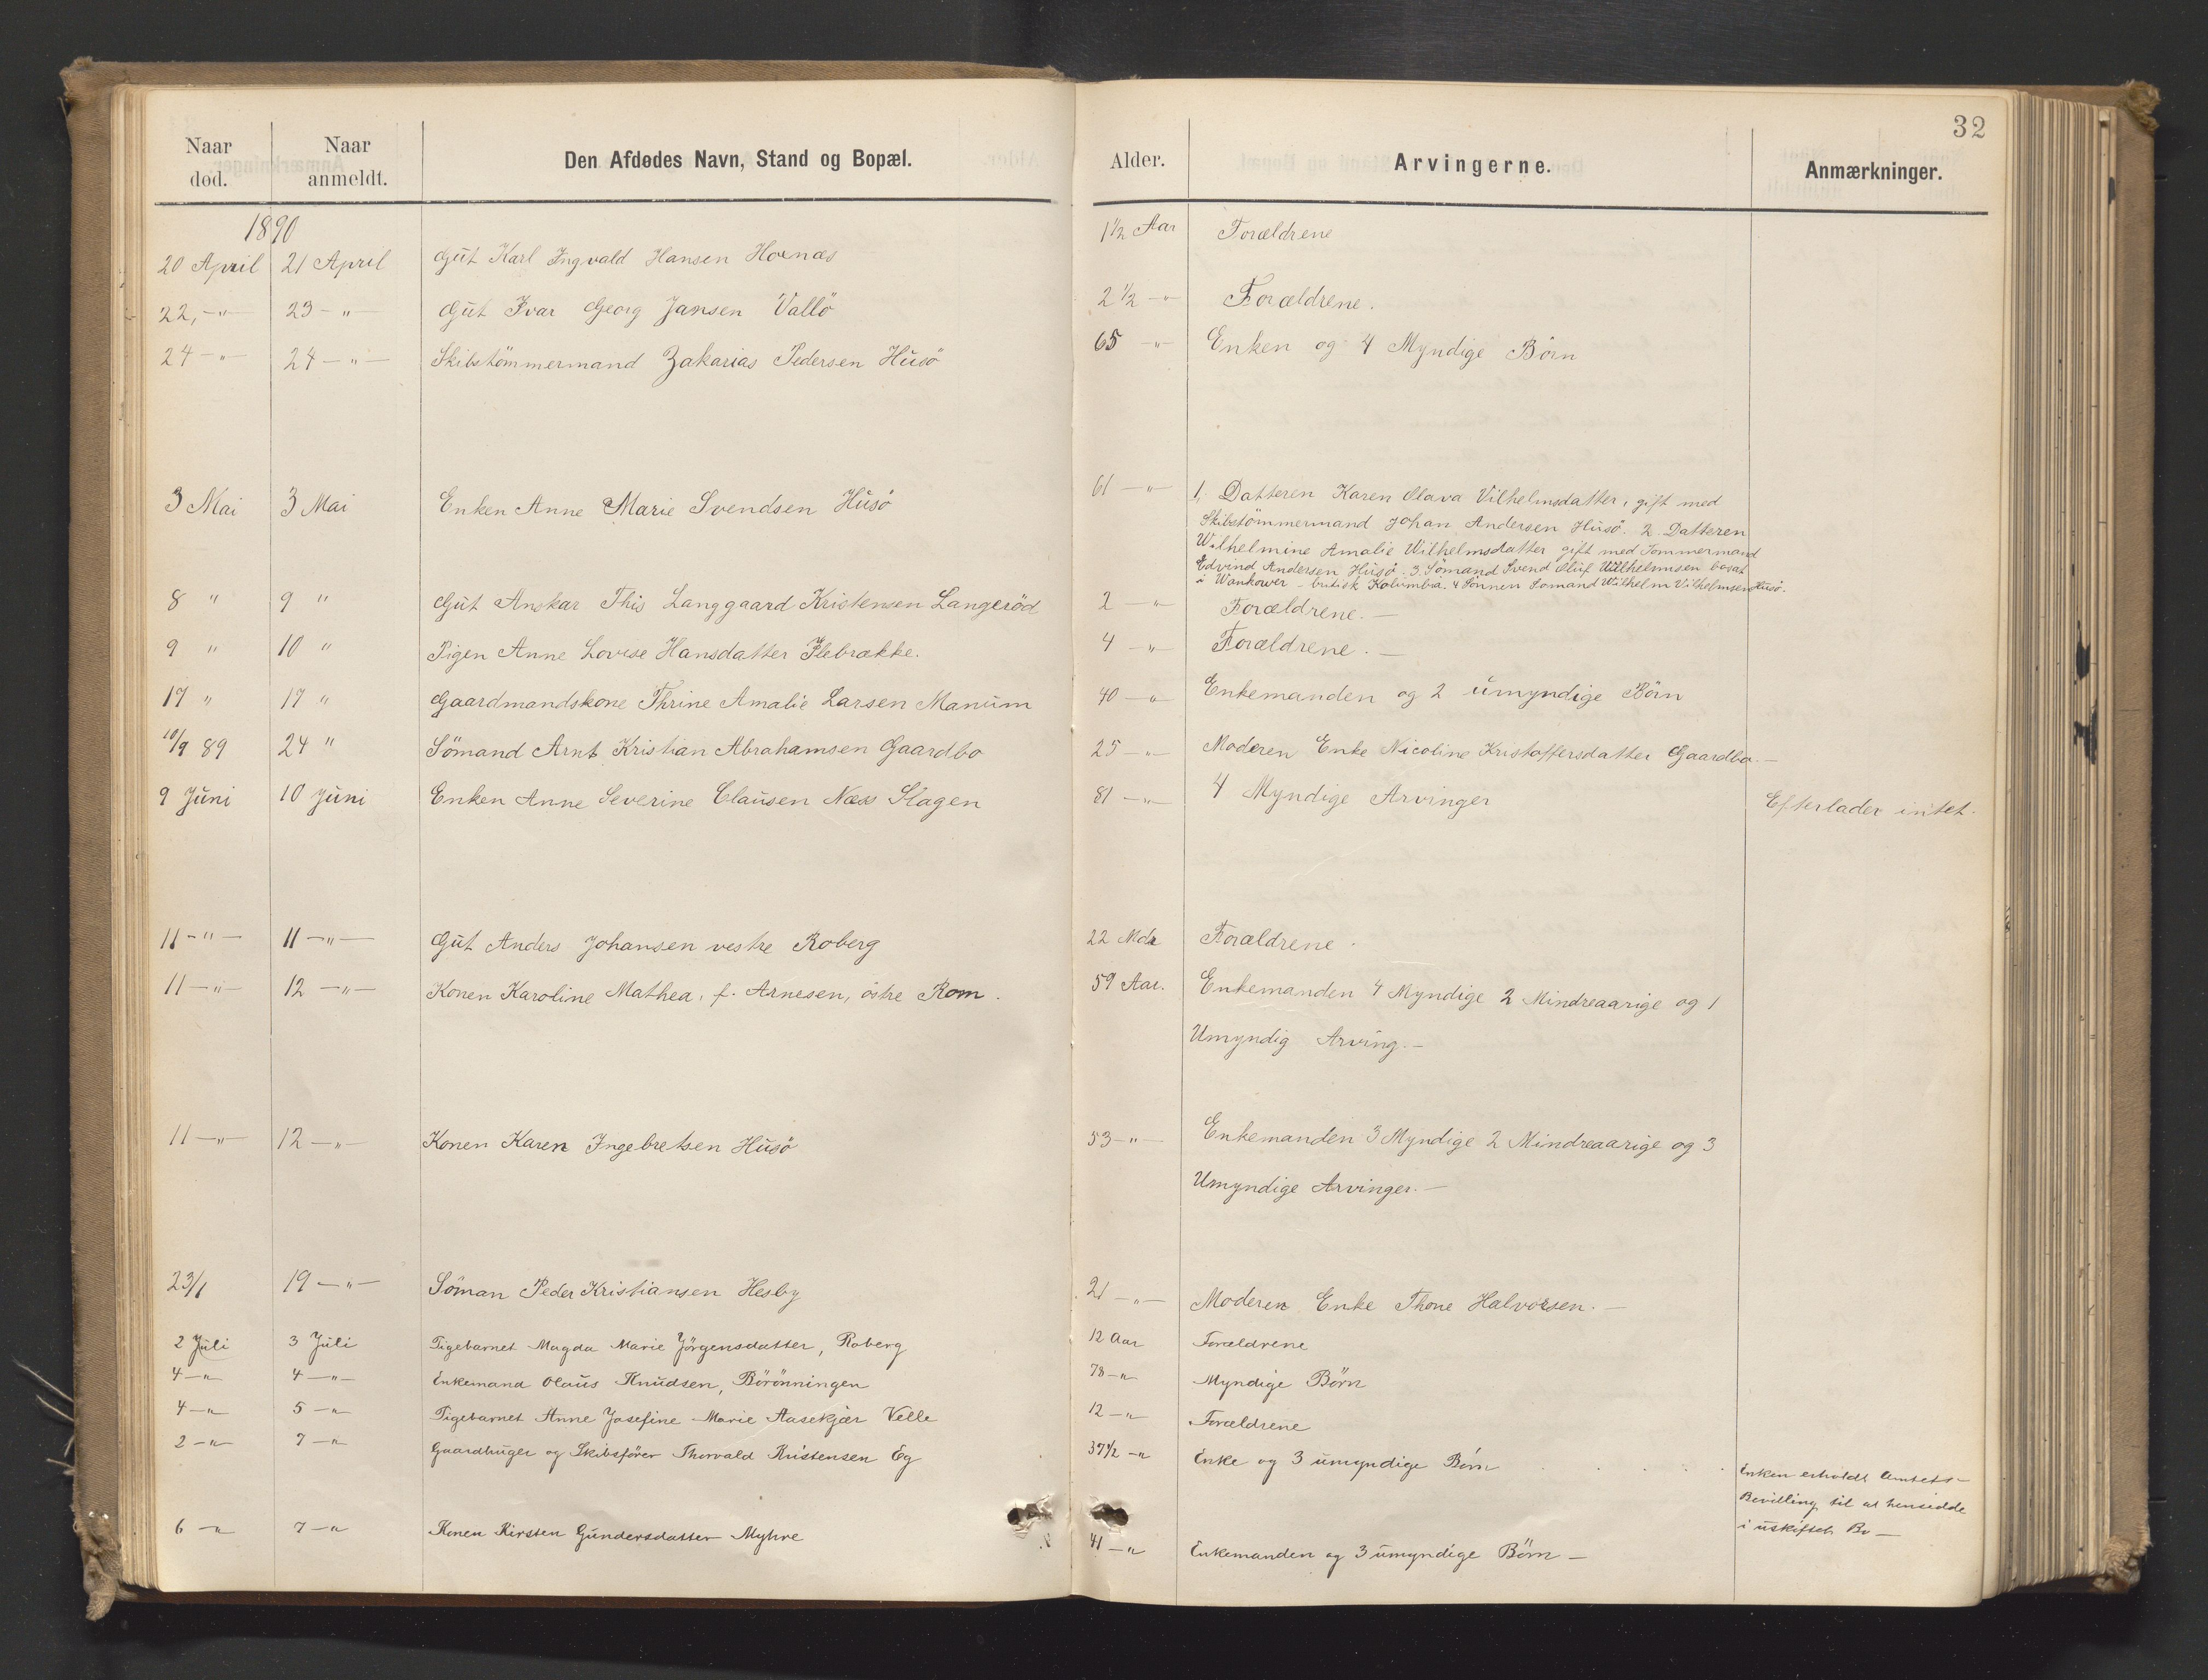 32
Naar død. Naar anmeldt. Den Afdødes Navn, Stand og Bopæl. Alder. Arvingerne. Anmærkninger.
1890
20 April 21 April Gut Karl Ingvald Hansen Hornæs 1½ Aar Forældrene
22, -"- 23 -"- Gut Ivar Georg Jansen Vallö 2½ -"- Forældrene.
24 -"- 24 -"- Skibstömmermand Zakarias Pedersen Husö 65 -"- Enken og 4 Myndige Börn
3 Mai 3 Mai Enken Anne Marie Svendsen Husö 61 -"- 1, Datteren Karen Olava Vilhelmsdatter, gift med
Skibstömmermand Johan Andersen Husö. 2. Datteren
Wilhelmine Amalie Wilhelmsdatter gift med Tommermand
Edvind Andersen Husö. 3. Sömand Svend Oluf Wilhelmsen bosat
i Wankower - britisk Kolumbia. 4 Sönnen Somand Wilhelm Vilhelmsen Husö.
8 " 9 " Gut Anskar This Langgaard Kristensen Langeröd 2 -"- Forældrene. -
9 " 10 " Pigen Anne Lovise Hansdatter Ilebrække. 4 -"- Forældrene. -
17 " 17 " Gaardmandskone Thrine Amalie Larsen Manum 40 -"- Enkemanden og 2 umyndige Börn
10/9 89 24 " Sömand Arnt Kristian Abrahamsen Gaardbo 25 -"- Moderen Enke Nicoline Kristoffersdatter Gaardbo. -
9 Juni 10 Juni Enken Anne Severine Clausen Næss Slagen 81 -"- 4 Myndige Arvinger Efterlader intet.
11 -"- 11 -"- Gut Anders Johansen vestre Roberg 22 Mdr Forældrene.
11 -"- 12 -"- Konen Karoline Mathea, f. Arnesen, östre Rom. 59 Aar. Enkemanden 4 Myndige 2 Mindreaarige og 1
Umyndig Arving. -
11 -"- 12 -"- Konen Karen Ingebretsen Husö 53 -"- Enkemanden 3 Myndige 2 Mindreaarige og 3
Umyndige Arvinger. -
23/1 19 -"- Söman Peder Kristiansen Hesby 21 -"- Moderen Enke Thone Halvorsen. -
2 Juli 3 Juli Pigebarnet Magda Marie Jörgensdatter, Roberg 12 Aar Forældrene
4 -"- 4 -"- Enkemand Olaus Knudsen, Börönningen 78 -"- Myndige Börn
4 -"- 5 -"- Pigebarnet Anne Josefine Marie Aasekjær Velle 12 -"- Forældrene
2 -"- 7 -"- Gaardbruger og Skibsförer Thorvald Kristensen Eg 37½ -"- Enke og 3 umyndige Börn . . . . Enken erholdt Amtets-
Bevilling til at hensidde
i uskiftet Bo -
6 -"- 7 -"- Konen Kirsten Gundersdatter Myhre 41 -"- Enkemanden og 3 umyndige Börn -